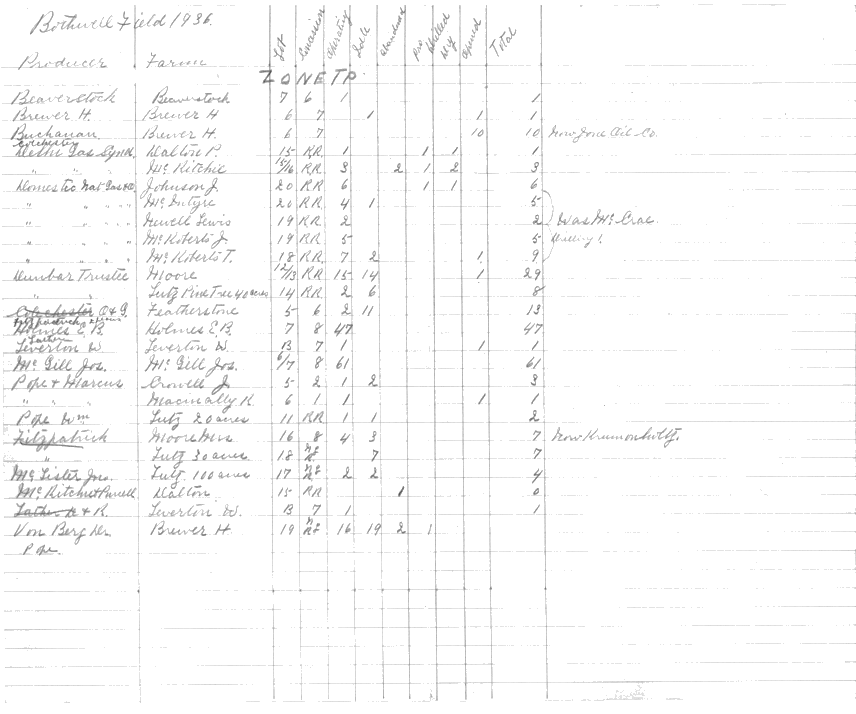 Bothwell Field 1936.
Producer Farm Lot Concession Operating Idle Abandoned Pro Drilled Dry Opened Total
ZONE TP.
Beaverstock Beaverstock 7 6 1 1
Brewer H. Brewer H 6 7 1 1 1
Buchanan Brewer H. 6 7 10 10 Now Zone Oil Co.
Colchester
Delhi Gas Synd. Dalton P. 15 RR. 1 1 1 1
" " " Mc Ritchie 15/16 RR 3 2 1 2 3
Domestic Nat Gas Johnson J 20 RR 6 1 1 6
" " " " Mc Intyre 20 RR 4 1 5
" " " " Newell Lewis 19 RR 2 2 Was Mc Crae
" " " " Mc Roberts J. 19 RR 5 5
" " " " Mc Roberts T. 18 RR. 7 2 1 9
Dunbar Trustee Moore 12/13 RR 15 14 1 29
" " Lutz Pine Tree 40 acres 14 RR 2 6 8
Colchester O & G. Featherstone 5 6 2 11 13
Holmes E. B. Holmes E. B. 7 8 47 47
Leverton W Leverton W. B 7 1 1 1
Mc Gill Jos. Mc Gill Jos. 6/7 8 61 61
Pope & Marcus Crowell J 5 2 1 2 3
" " " Macinally K. 6 1 1 1 1
Pope Wm Lutz 20 acres 11 RR 1 1 2
Fitzpatrick Moore 16 8 4 3 7
" Lutz 30 acres 18 7 7
Mc Lister Jno. Lutz 100 acres 17 2 2 4
Mc Ritchie & Purcell Dalton 15 RR 1 0
& R. Leverton W. B 7 1 1
Von Berg Brewer H 19 16 19 2 1
Pope.